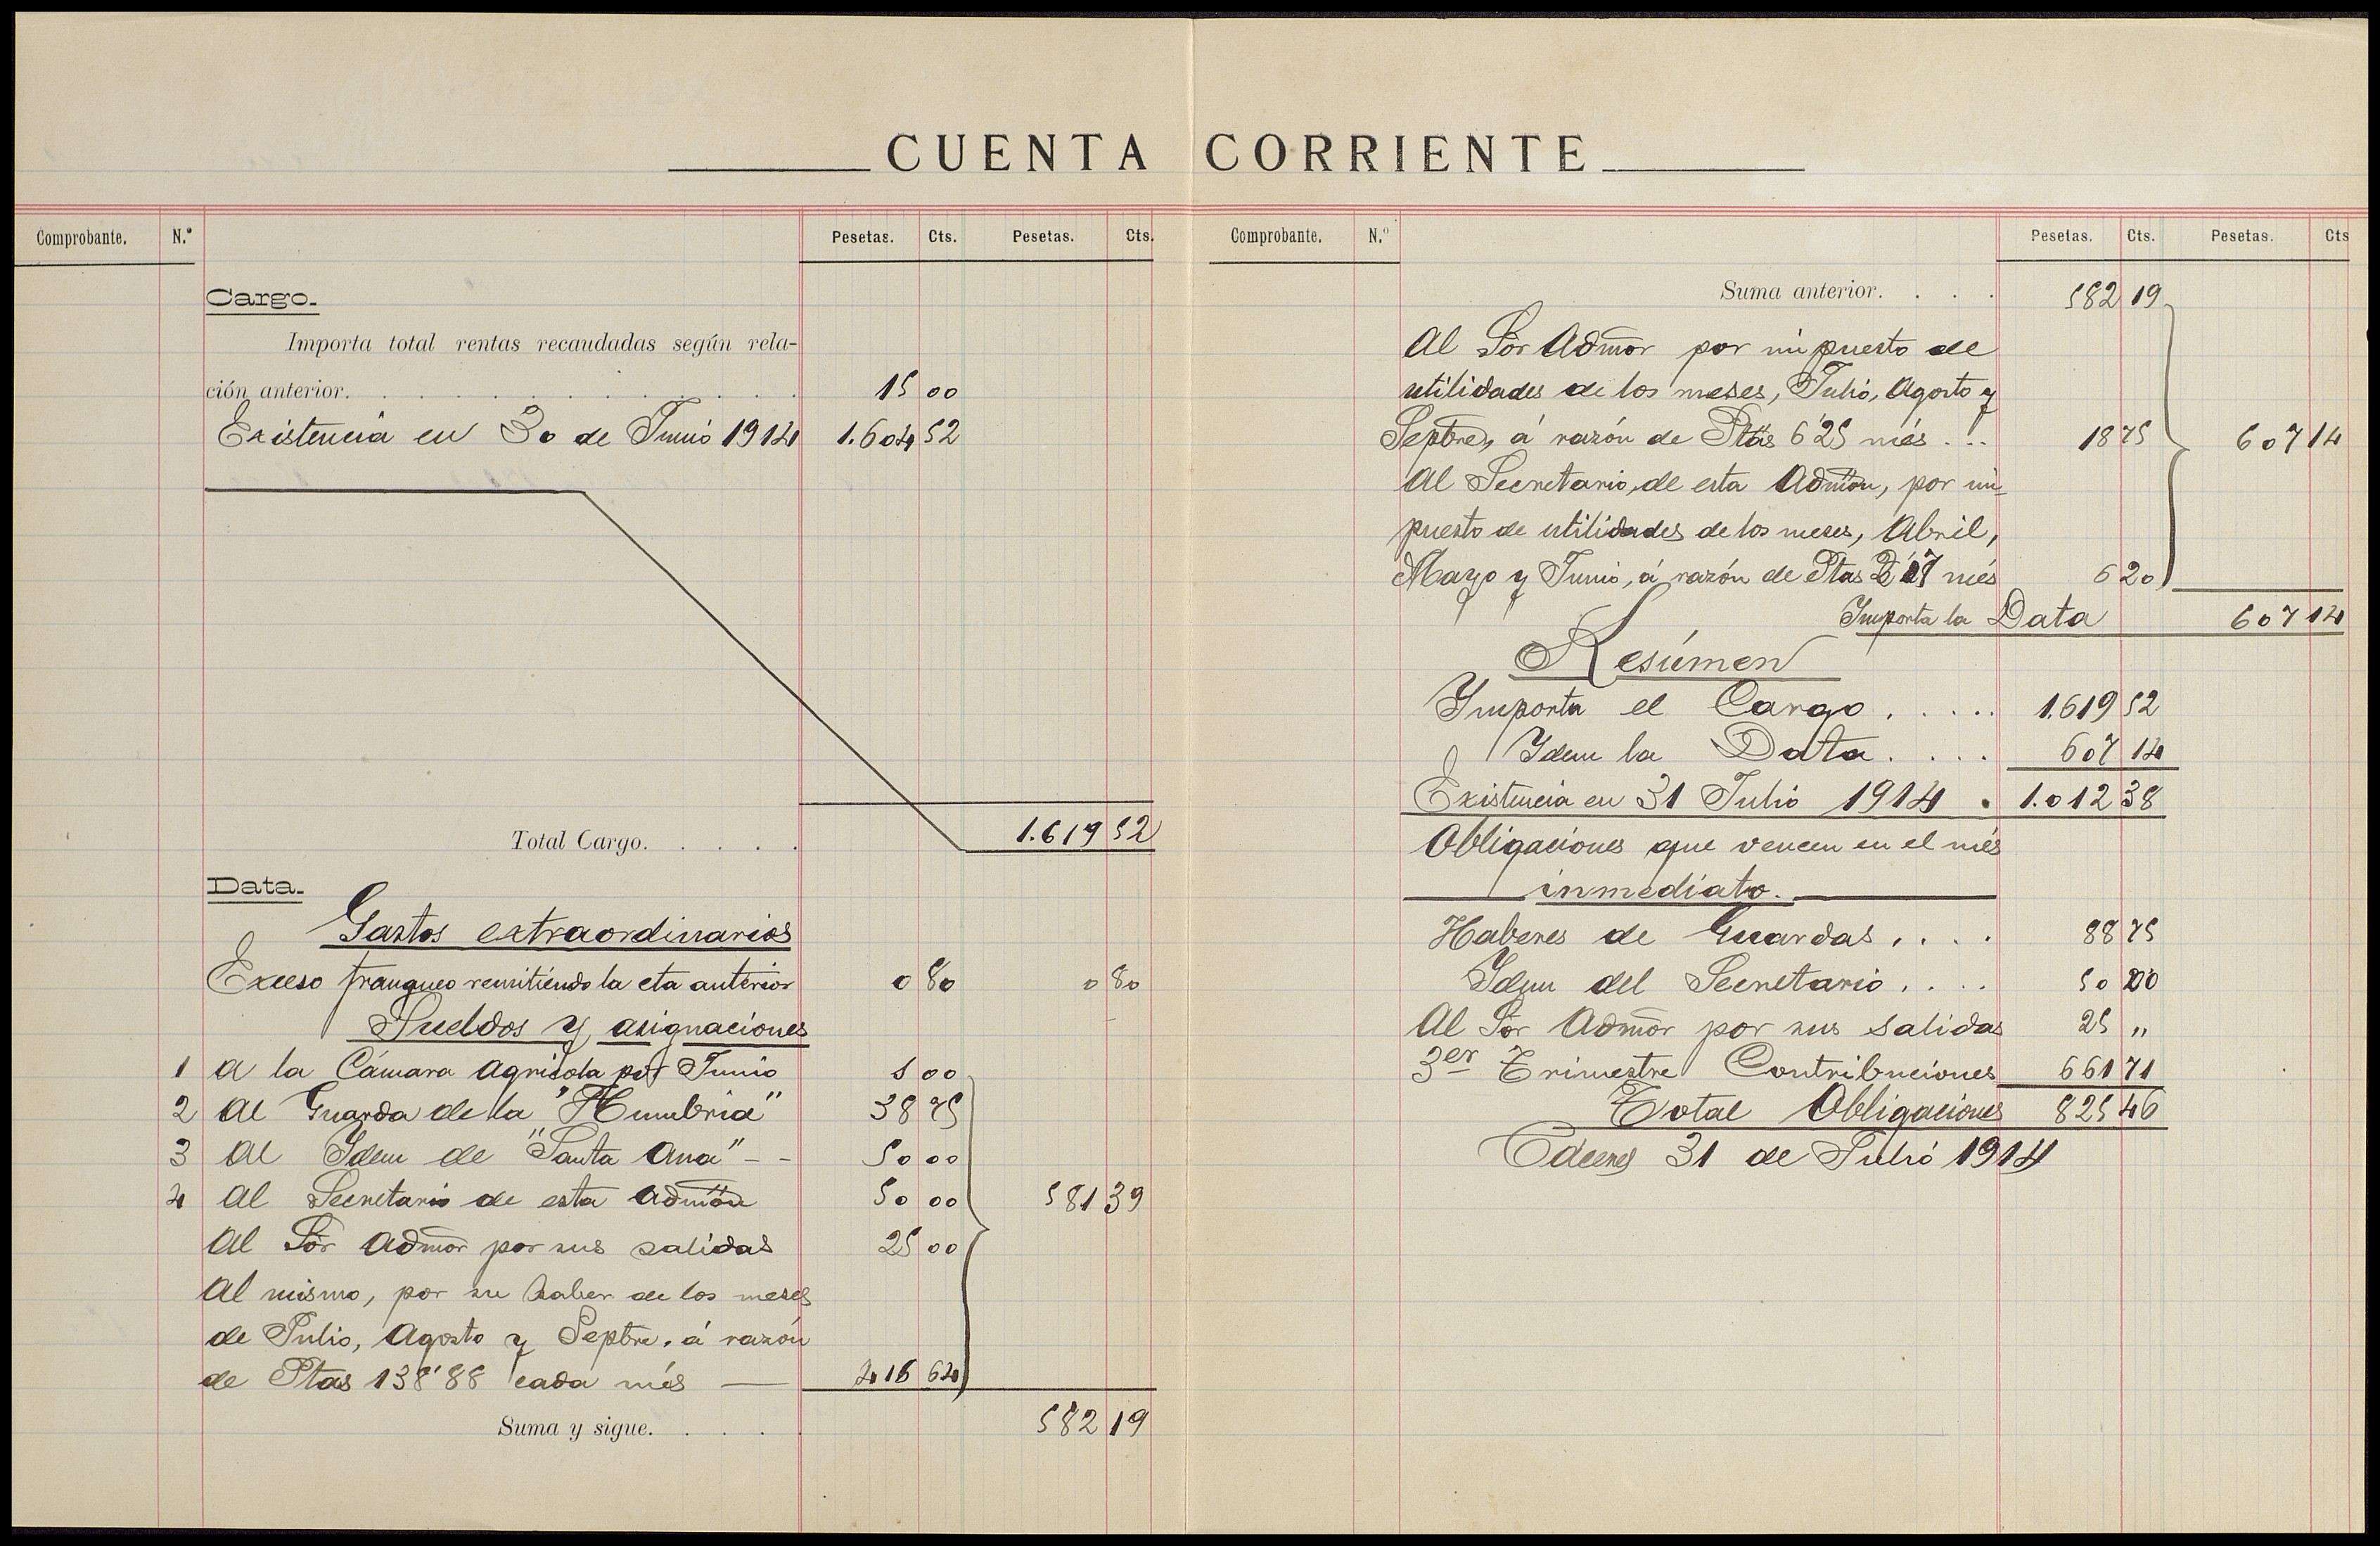 CUENTA CORRIENTE
Comprobante. N.º Pesetas. Cts. Pesetas. Cts.
Cargo.
Importa total rentas recaudadas según rela-
ción anterior. . . . . . . . . . . . . 15 00
Existencia en 30 de Junio 1914 1.604 52
Total Cargo. . . . . 1.619 52
Data.
Gastos extraordinarios
Exceso franqueo remitiendo la cta anterior 0 80 0 80
Sueldos y asignaciones
1 A la Cámara Agrícola por Junio 1 00
2 Al Guarda de la "Humbria" 38 75
3 Al Idem de "Santa Ana" - - 50 00
4 Al Secretario de esta Admón 50 00 581 39
Al Sör Admör por sus salidas 25 00
Al mismo, por su haber de los meses
de Julio, Agosto y Septbre. á razón
de Ptas 138'88 cada més — 416 64
Suma y sigue. . . . . 582 19
Comprobante. N.º Pesetas. Cts. Pesetas. Cts
Suma anterior. . . . 582 19
Al Sör Admör por impuesto de
utilidades de los meses, Julio, Agosto y
Septbre, á razón de Ptas 6'25 més . . . 18 75 607 14
Al Secretario, de esta Admón, por im-
puesto de utilidades de los meses, Abril,
Mayo y Junio, á razón de Ptas més 6 20
Importa la Data 607 14
Resúmen
Importa el Cargo . . . . . 1.619 52
Idem la Data . . . . 607 14
Existencia en 31 Julio 1914 . 1.012 38
Obligaciones que vencen en el més
inmediato.
Haberes de Guardas . . . . 88 75
Idem del Secretario . . . . 50 00
Al Sör Admör por sus salidas 25 "
3er Trimestre Contribuciones 661 71
Total Obligaciones 825 46
31 de Julio 1914